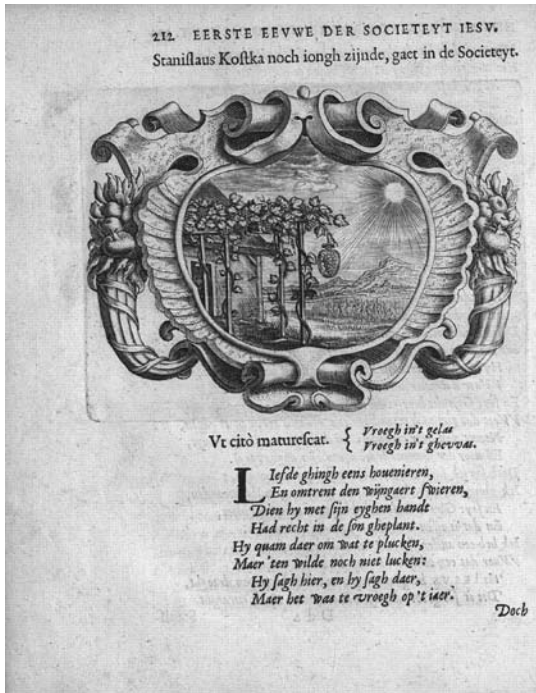 212 EERSTE EEVWE DER SOCIETEYT IESV.
Staniſlaus Koſtka noch iongh zijnde, gaet in de Societeyt.
Vt citò matureſcat. { Vroegh in't gelas
Vroegh in't ghevvas.
LIefde ghingh eens houenieren,
En omtrent den wijngaert ſwieren,
Dien hy met ſijn eyghen handt
Had recht in de ſon gheplant.
Hy quam daer om wat te plucken,
Maer 'ten wilde noch niet lucken:
Hy ſagh hier, en hy ſagh daer,
Maer het was te vroegh op 't iaer.
Doch